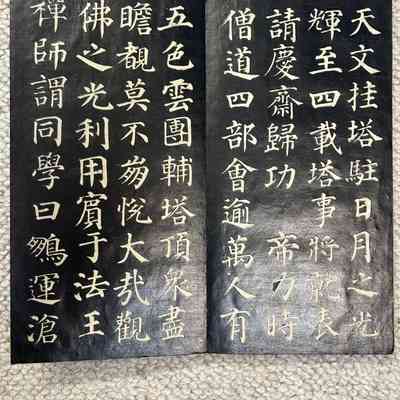 天文挂塔駐日月之光
輝至四載塔事將就表
請慶齋歸功 帝力時
僧道四部會逾萬人有
五色雲團輔塔頂衆盡
瞻覩莫不崩悅大哉觀
佛之光利用賓于法王
禪師謂同學曰鵬運滄